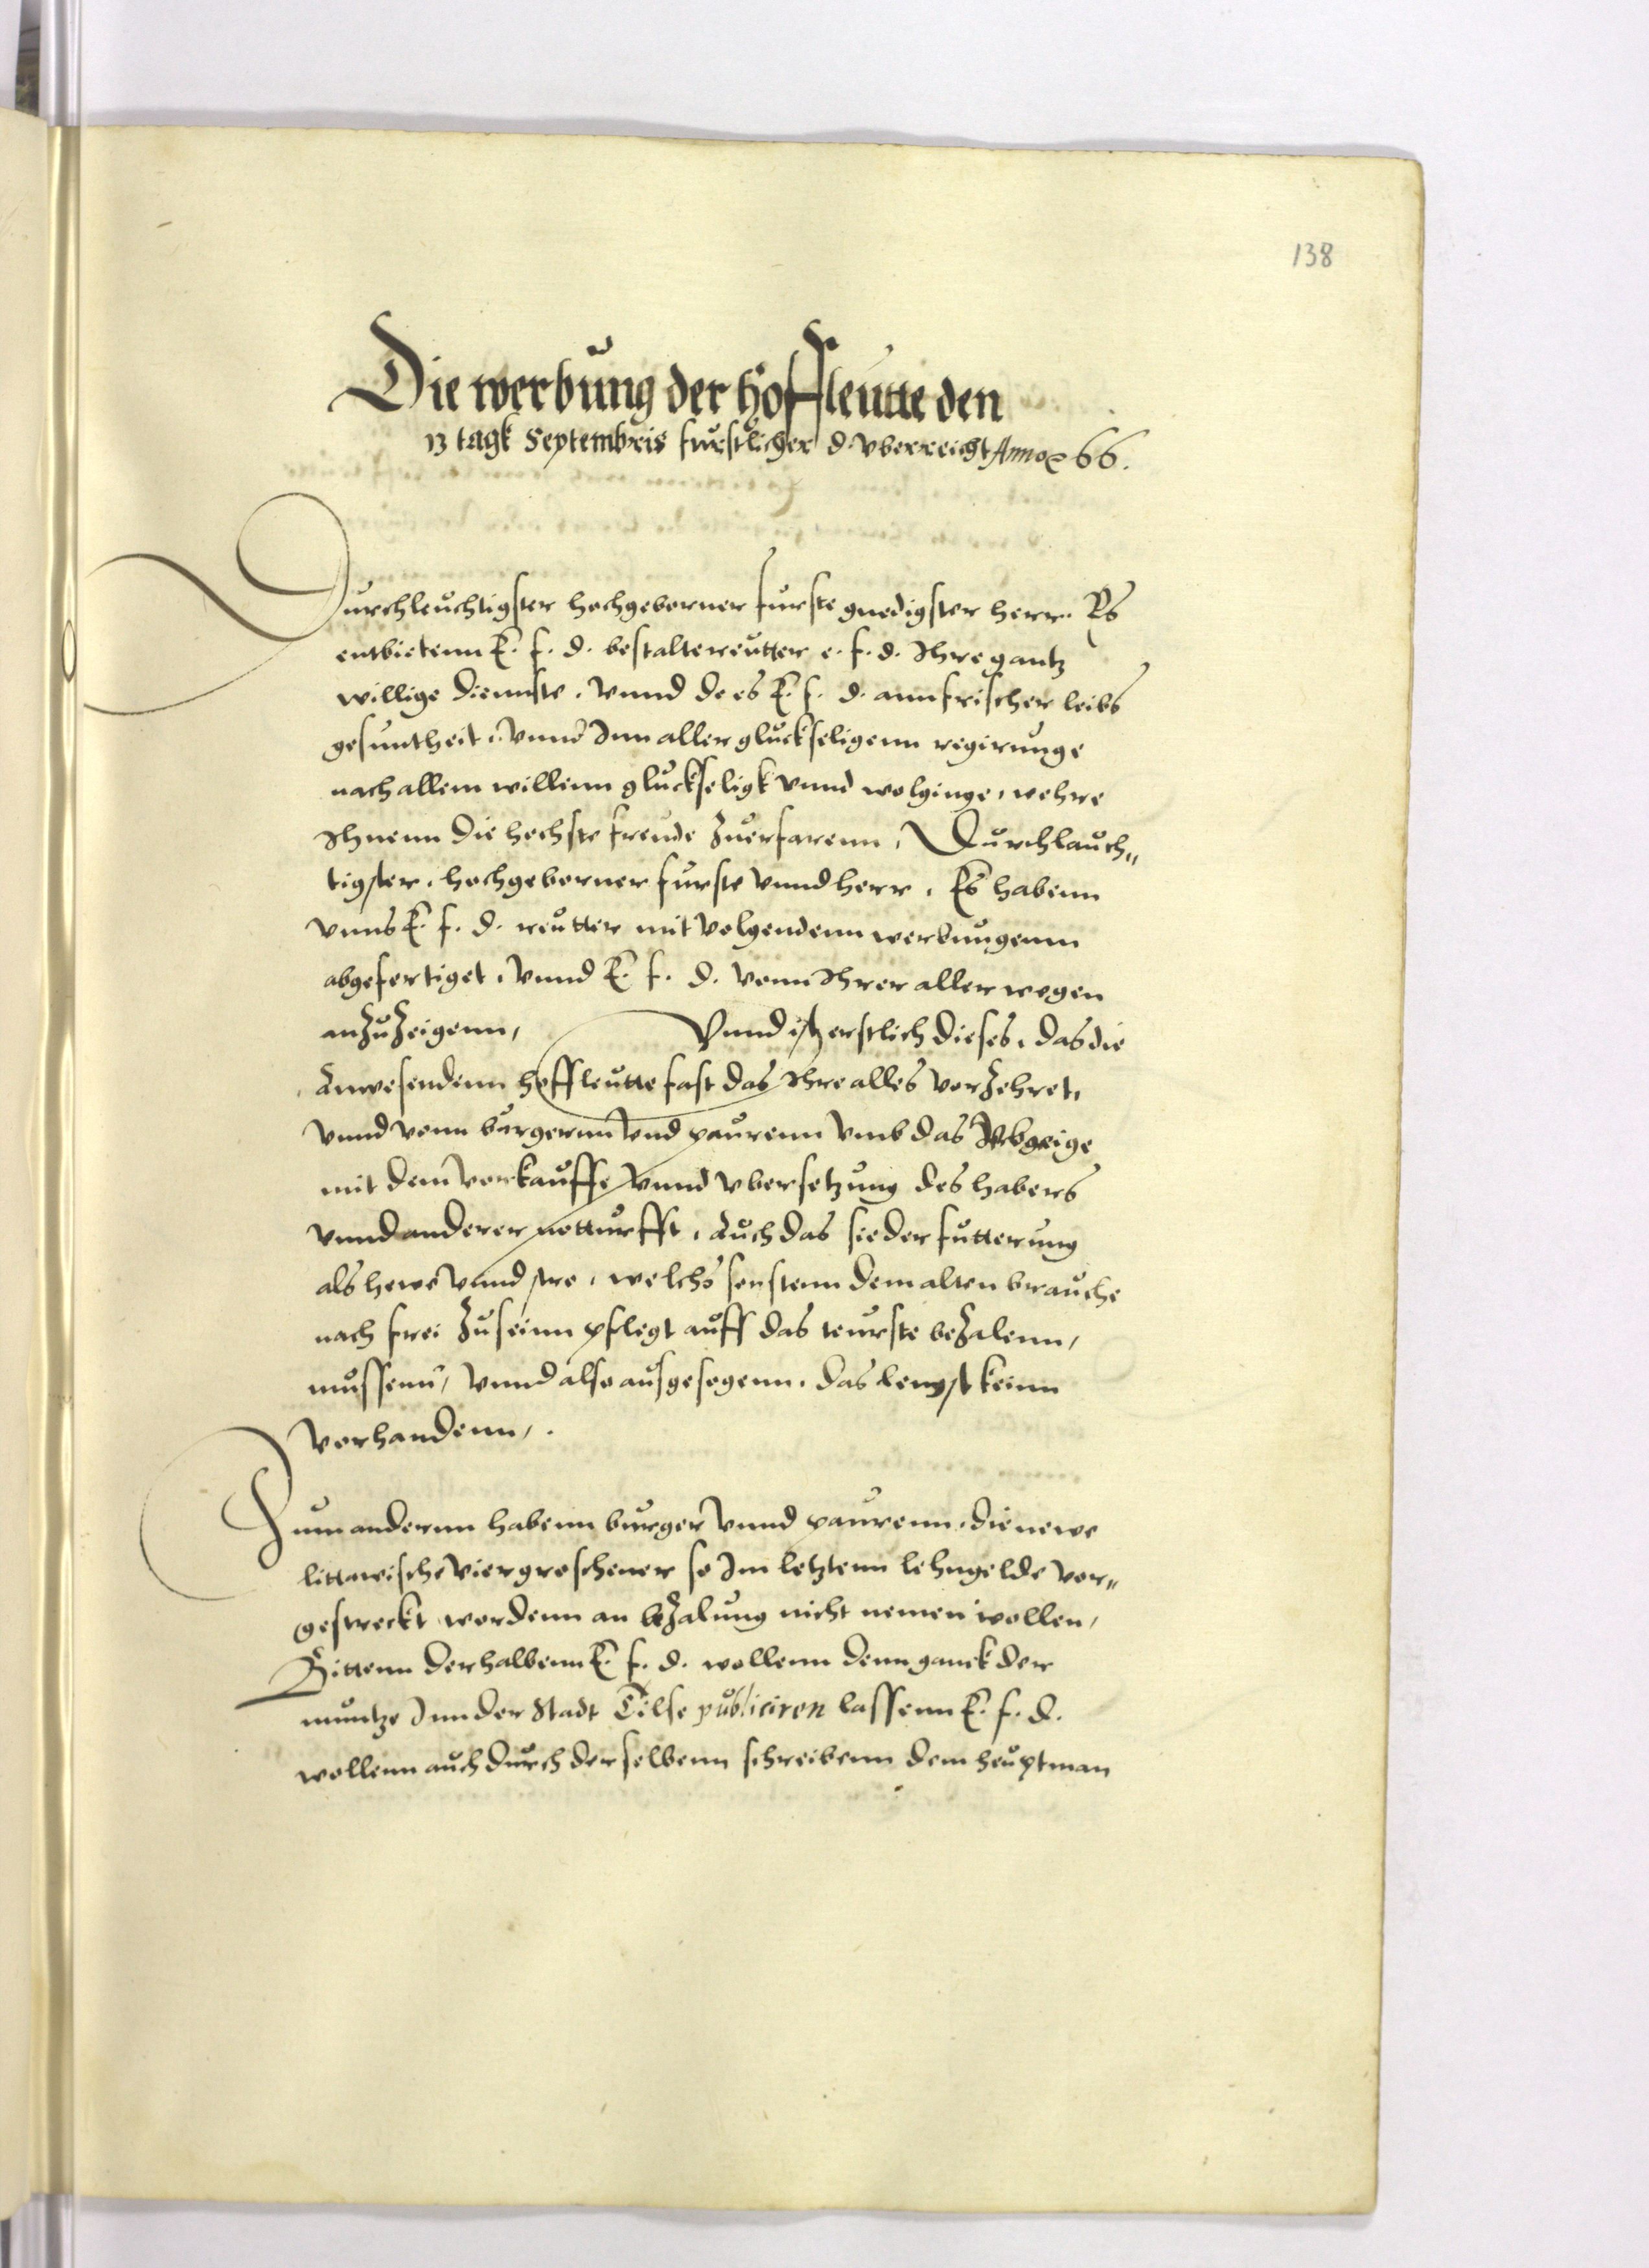 138
Die werbung der Hoffleutte den
13 tagk Septembris furstlicher d. vberreicht Anno 66.
Durchleuchtigster hochgeborner furste gnedigster herr. Es
entbietenn E. f. d. bestalte reutter e. f. d. Ihre gantz
willige dienste. Vnnd do es E. f. d. ann frischer leibs
gesuntheit, vnnd Inn aller gluckseligenn regirunge
nach allem willenn gluckseligk vnnd wolginge, wehre
Ihnenn die hochste freude zuerfarenn, Durchlauch„
tigster, hochgeborner furste vnnd herr, Es habenn
vnns E. f. d. reutter mit volgendenn werbungenn
abgefertiget, vnnd E. f. d. vonn Ihrer aller wegen
anzuzeigenn, Vnnd ist erstlich dieses, das die
Anwesendenn hoffleutte fast das Ihre alles vorzehret,
vnnd vonn burgernn vnd paurenn vmb das
mit dem vorkauffe vnnd vbersetzung des habers
vnnd anderer notturfft, Auch das sie der futterung
als hewe vnnd stro, welchs sonstenn dem alten brauche
nach frei zu seinn pflegt auff das teurste bezalenn,
mussenn, vnnd also ausgesogenn, das lengst keinn
vorhandenn,.
Zum andernn habenn burger vnnd paurenn, die newe
littawische viergroschener so Im letztenn lehngelde vor„
gestreckt wordenn an bezalung nicht nemen wollen,
Bittenn derhalbenn E. f. d. wollenn denn ganck der
muntze Inn der Stadt Tilse publiciren lassenn E. f. d.
wollenn auch durch derselbenn schreibenn dem heuptman